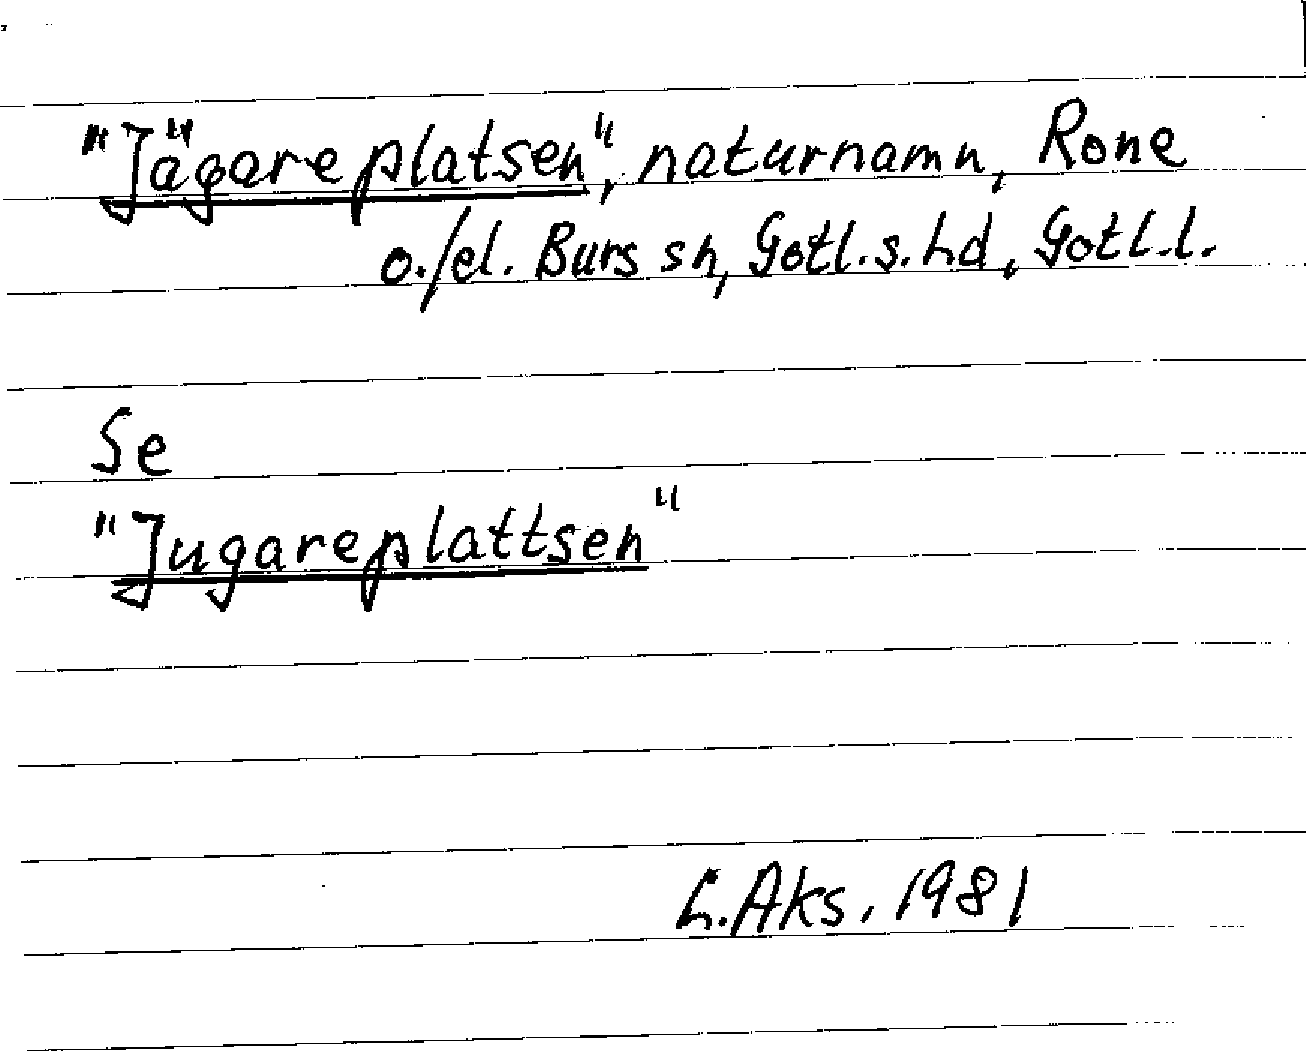 "Jägareplatsen", naturnamn, Rone
o./el. Burs sn, Gotl.s.hd, Gotl.l.
Se
"Jugareplattsen"
h.Aks. 1981